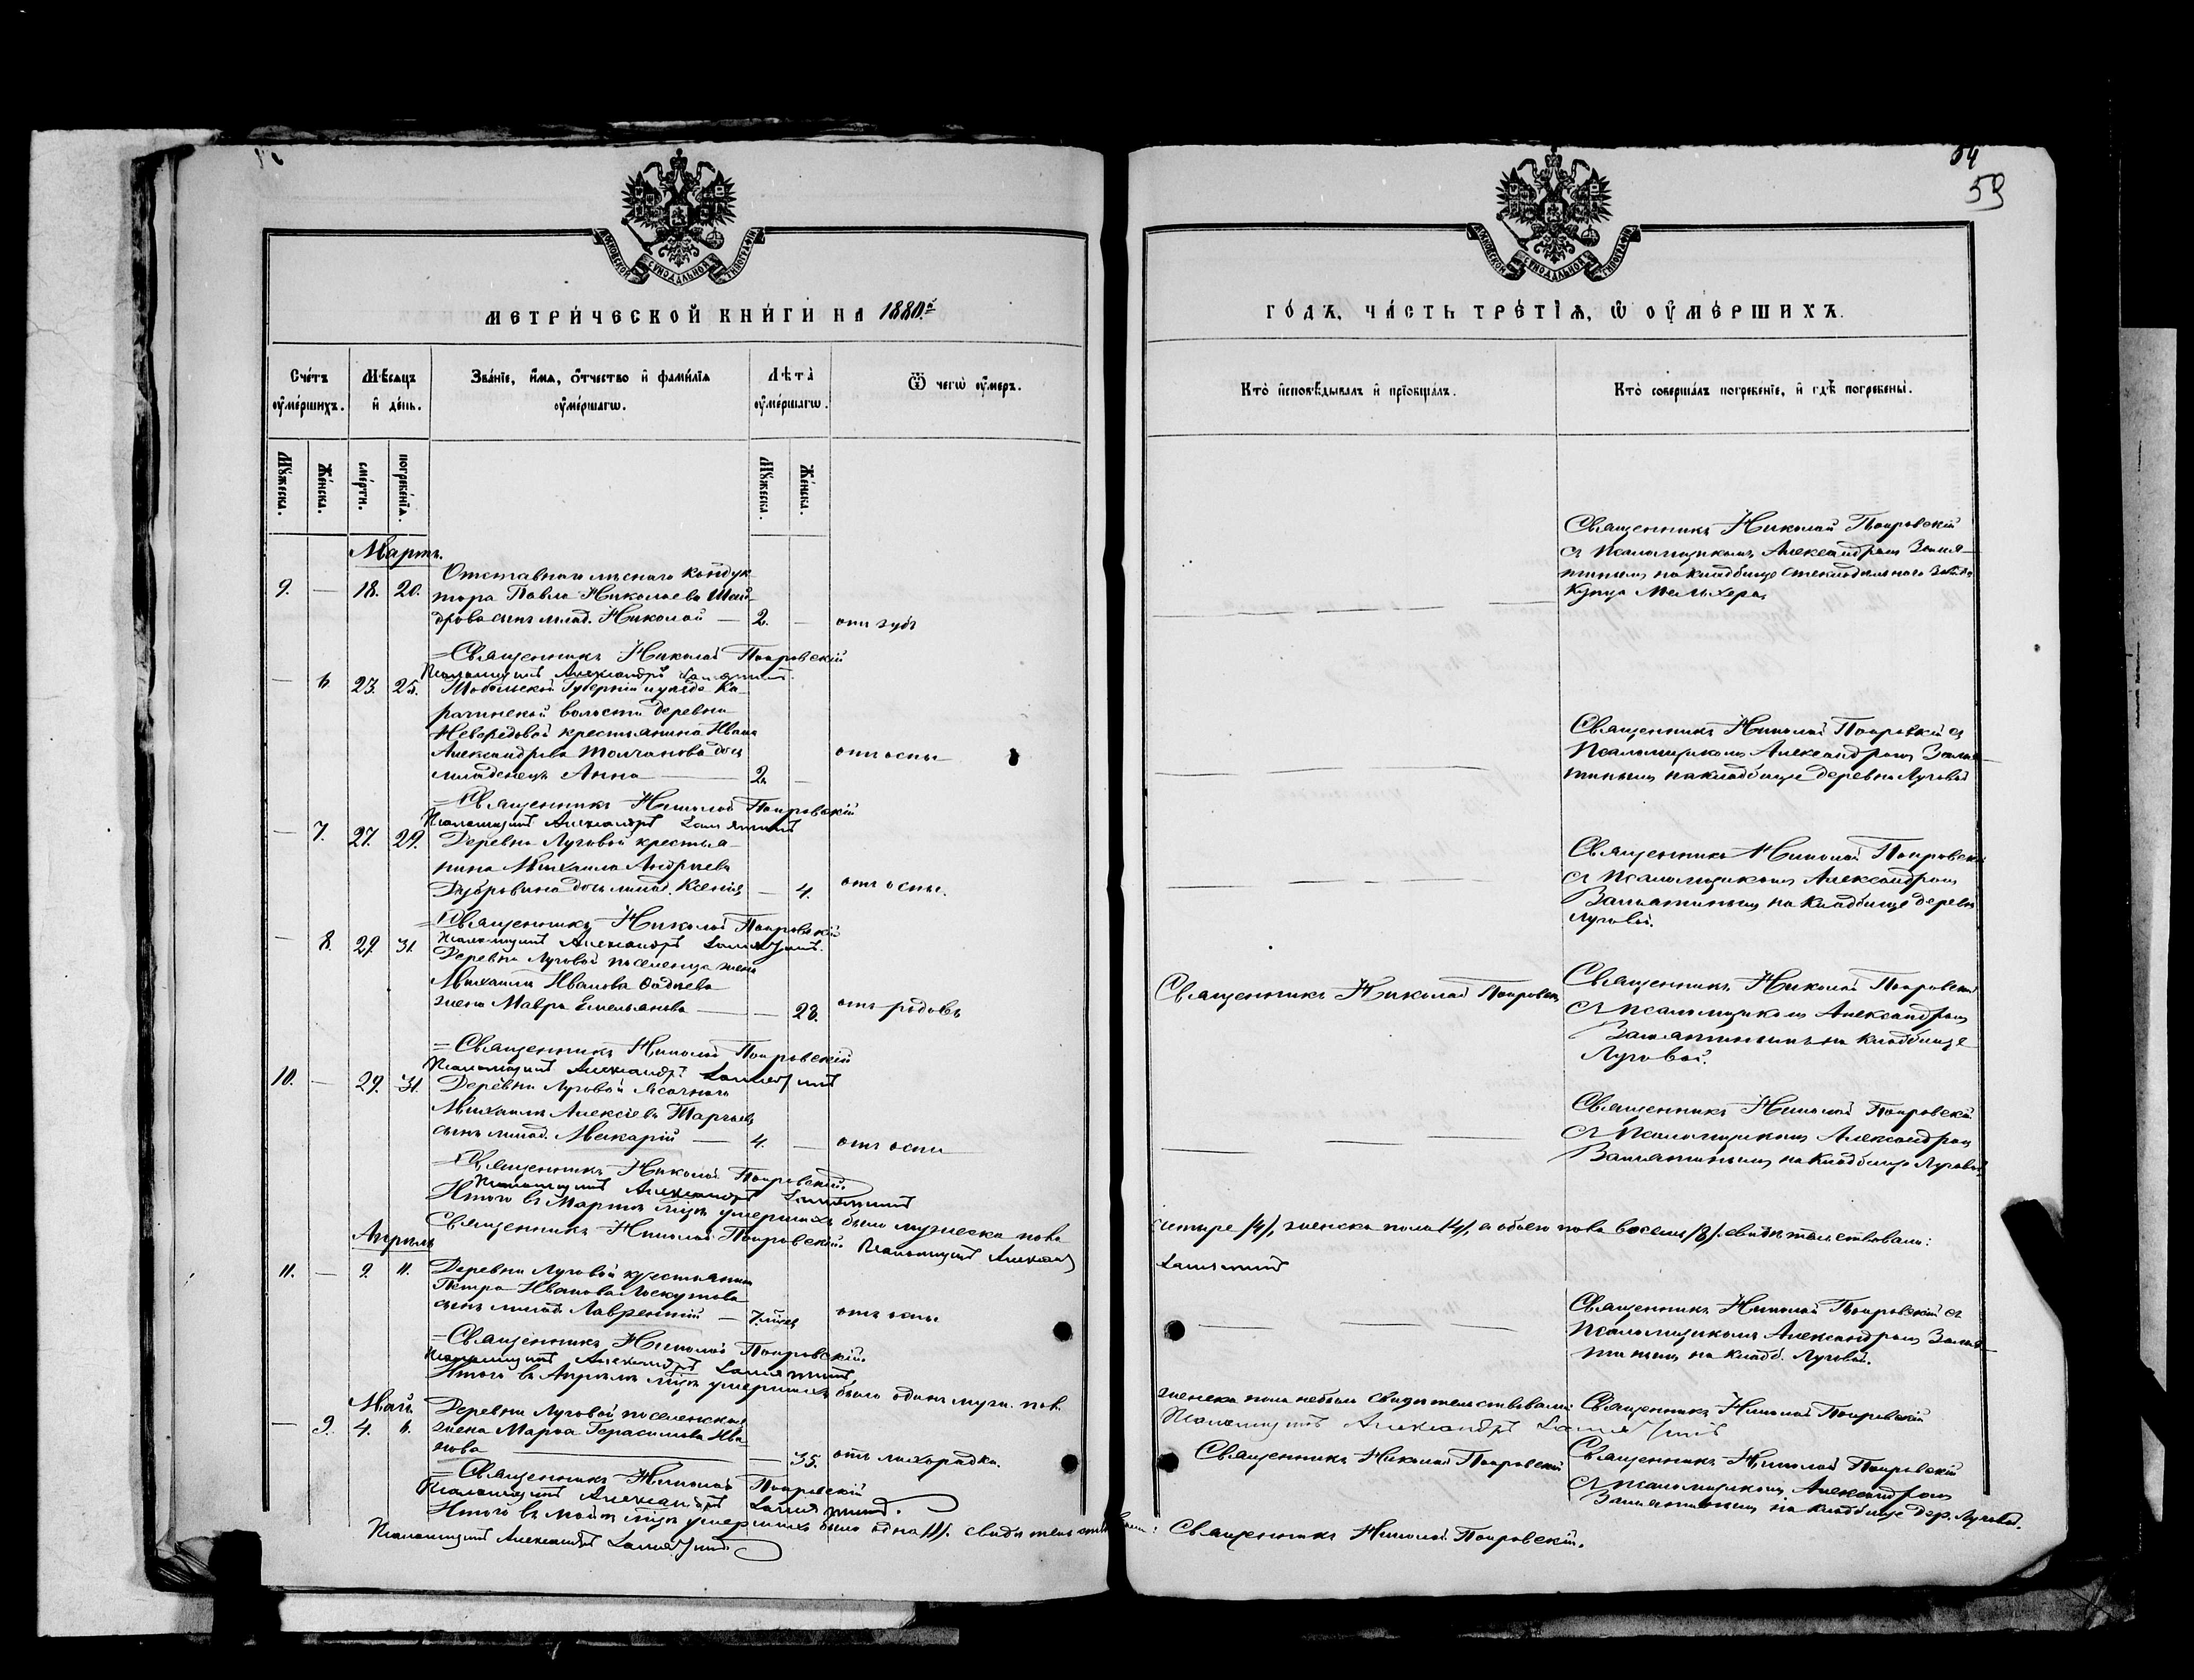 54
59
МОСКОВСКОЙ СѴНОДАЛЬНОЙ ТИПОГРАФІИ
МОСКОВСКОЙ СѴНОДАЛЬНОЙ ТИПОГРАФІИ
МЕТРИ́ЧЕСКОЙ КНИ́ГИ НА 1880.й
ГО́ДЪ, ЧА́СТЬ ТРЕ́ТІѦ, Ѡ ОУ҆МЕ́РШИХЪ.
Сче́тъ оу҆ме́ршихъ.
Мѣ́сѧцъ и҆ де́нь.
Зва́нїе, и҆́мѧ, ѻ҆́тчество и҆ фами́лїѧ оу҆ме́ршагѡ.
Лѣта̀ оу҆ме́ршагѡ.
Ѿ чегѡ̀ оу҆́меръ.
Кто̀ и҆сповѣ́дывалъ и҆ прїѡбща́лъ.
Кто̀ соверша́лъ погребе́нїе, и҆ гдѣ̀ погребены̀.
Мꙋ́жеска.
Же́нска.
сме́рти.
погребе́нїѧ.
Мꙋ́жеска.
Же́нска.
Мартъ.
9. — 18. 20. Отставнаго лѣснаго кондук
тора Павла Николаева Шай-
дрова сынъ млад. Николай — 2. — отъ зубъ
Священникъ Николай Покровскій
съ Псаломщикомъ Александромъ Замя-
тинымъ на кладбищѣ Стеклодѣльнаго Завода
Купца Мельхера
= Священникъ Николай Покровскій
Псаломщикъ Александръ Замятинъ
— 6. 23. 25. Тобольской Губерніи и уѣзда Ка-
рачинской волости деревни
крестьянина Ивана
Александрова Толчанова дочь
младенецъ Анна — 2. — отъ оспы
Священникъ Николай Покровскій съ
Псаломщикомъ Александромъ Замя-
тинымъ на кладбищѣ деревни Луговой
= Священникъ Николай Покровскій
Псаломщикъ Александръ Замятинъ
— 7. 27. 29. Деревни Луговой крестья-
нина Михаила Андреева
Дубровина дочь млад. Ксенія — 4. отъ оспы.
Священникъ Николай Покровскій
съ Псаломщикомъ Александромъ
Замятинымъ на кладбищѣ деревни
Луговой.
= Священникъ Николай Покровскій
Псаломщикъ Александръ Замятинъ.
— 8. 29. 31. Деревни Луговой поселенца
Михаила Иванова Фадѣева
жена Мавра Емельянова — — 28. отъ родовъ
Священникъ Николай Покровскій
Священникъ Николай Покровскій
съ Псаломщикомъ Александромъ
Замятинымъ на кладбищѣ
Луговой.
= Священникъ Николай Покровскій
Псаломщикъ Александръ Замятинъ
10. — 29. 31. Деревни Луговой ясачнаго
Михаила Алексѣева
сынъ млад. Макарій — 4. — отъ оспы
Священникъ Николай Покровскій
съ Псаломщикомъ Александромъ
Замятинымъ на кладбищѣ Луговой
= Священникъ Николай Покровскій.
Псаломщикъ Александръ Замятинъ
Итого въ Мартѣ мѣсяцѣ умершихъ было мужеска пола
четыре /4/, женска пола /4/, а обоего пола восемь /8/. свидѣтельствовали:
Священникъ Николай Покровскій. Псаломщикъ Александръ
Замятинъ
Апрѣль
11. — 9. 11. Деревни Луговой крестьянина
Петра Иванова Лоскутова
сынъ млад. Лаврентій — 7. мѣсяц. отъ оспы
Священникъ Николай Покровскій съ
Псаломщикомъ Александромъ Замя-
тинымъ на кладб. Луговой.
= Священникъ Николай Покровскій.
Псаломщикъ Александръ Замятинъ,
Итого въ Апрѣлѣ мѣсяцѣ умершихъ было одинъ муж. пол.
женска пола небыло свидѣтельствовали: Священникъ Николай Покровскій
Псаломщикъ Александръ Замятинъ
Май.
— 9. 4. 6. Деревни Луговой поселенская
жена Марѳа Герасимова Ива-
нова — — 35. отъ лихорадки.
Священникъ Николай Покровскій
Священникъ Николай Покровскій
съ Псаломщикомъ Александромъ
Замятинымъ на кладбищѣ дер. Луговой.
= Священникъ Николай Покровскій
Псаломщикъ Александръ Замятинъ.
Итого въ маѣ мѣсяцѣ умершихъ было одна /1/. свидѣтельствовали: Священникъ Николай Покровскій.
Псаломщикъ Александръ Замятинъ